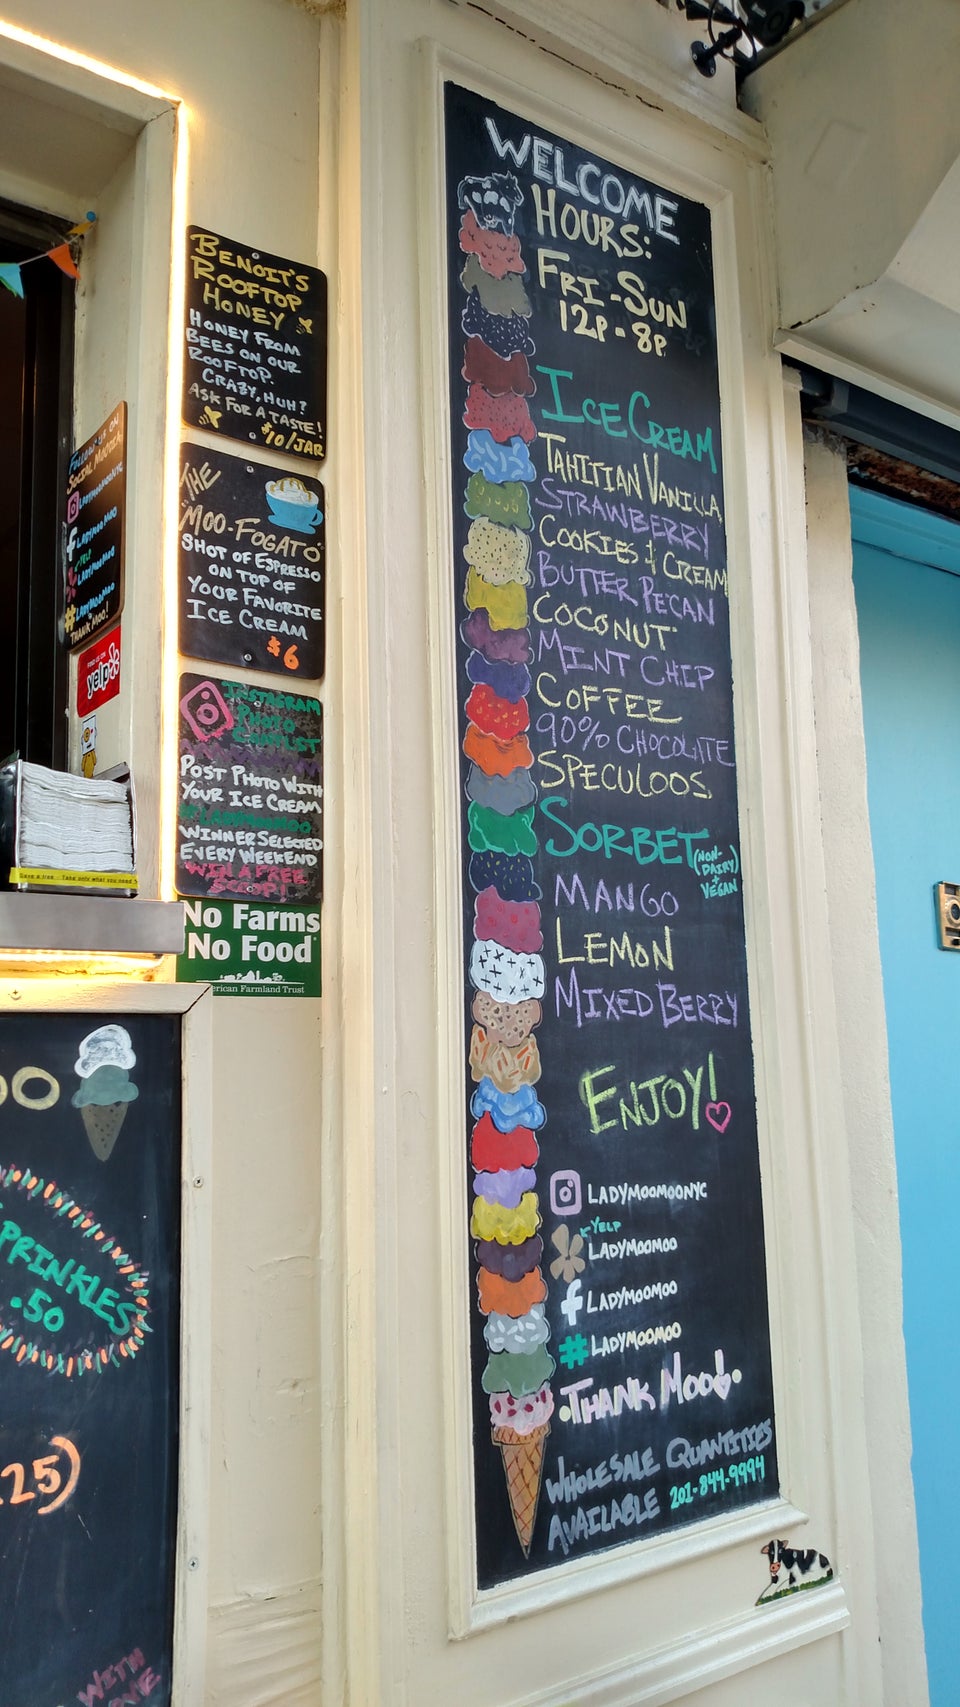 WELCOME
HOURS:
FRI-SUN
12P-8P
ICE CREAM
TAHITIAN VANILLA
STRAWBERRY
COOKIES & CREAM
BUTTER PECAN
COCONUT
MINT CHIP
COFFEE
90% CHOCOLATE
SPECULOOS
SORBET (NON-
DAIRY)
+
VEGAN
MANGO
LEMON
MIXED BERRY
ENJOY!
LADYMOOMOONYC
YELP
LADYMOOMOO
f LADYMOOMOO
# LADYMOOMOO
THANK MOO!
WHOLESALE QUANTITIES
AVAILABLE 201-844-9994
BENOIT'S
ROOFTOP
HONEY
HONEY FROM
BEES ON OUR
ROOFTOP.
CRAZY, HUH?
ASK FOR A TASTE!
$10/JAR
THE
MOO-FOGATO
SHOT OF ESPRESSO
ON TOP OF
YOUR FAVORITE
ICE CREAM
$6
INSTAGRAM
PHOTO
CONTEST
POST PHOTO WITH
YOUR ICE CREAM
#LADYMOOMOO
WINNER SELECTED
EVERY WEEKEND
WIN A FREE
SCOOP!
No Farms
No Food
erican Farmland Trust
FOLLOW US ON
SOCIAL MOODIA
LADYMOOMOONYC
f LADYMOOMOO
YELP
LADYMOOMOO
# LADYMOOMOO
THANK MOO!
yelp
Save a tree - Take only what you need
OO
SPRINKLES
.50
25)
WITH